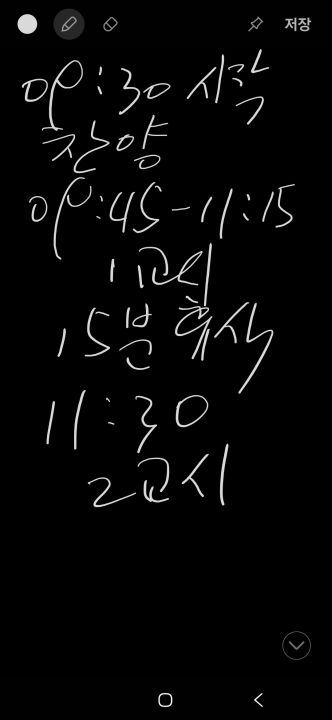 저장
09:30 시작
찬양
09:45-11:15
1교시
15분 휴식
11:30
2교시